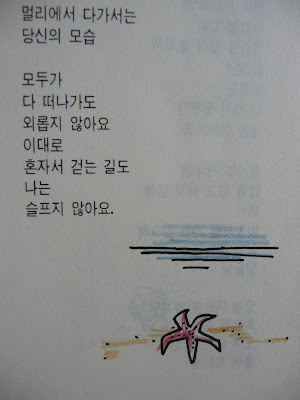 멀리에서 다가서는
당신의 모습
모두가
다 떠나가도
외롭지 않아요
이대로
혼자서 걷는 길도
나는
슬프지 않아요.